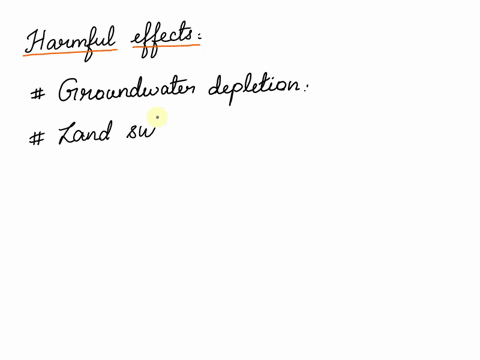 Harmful effects:
# Groundwater depletion:
# Land sw